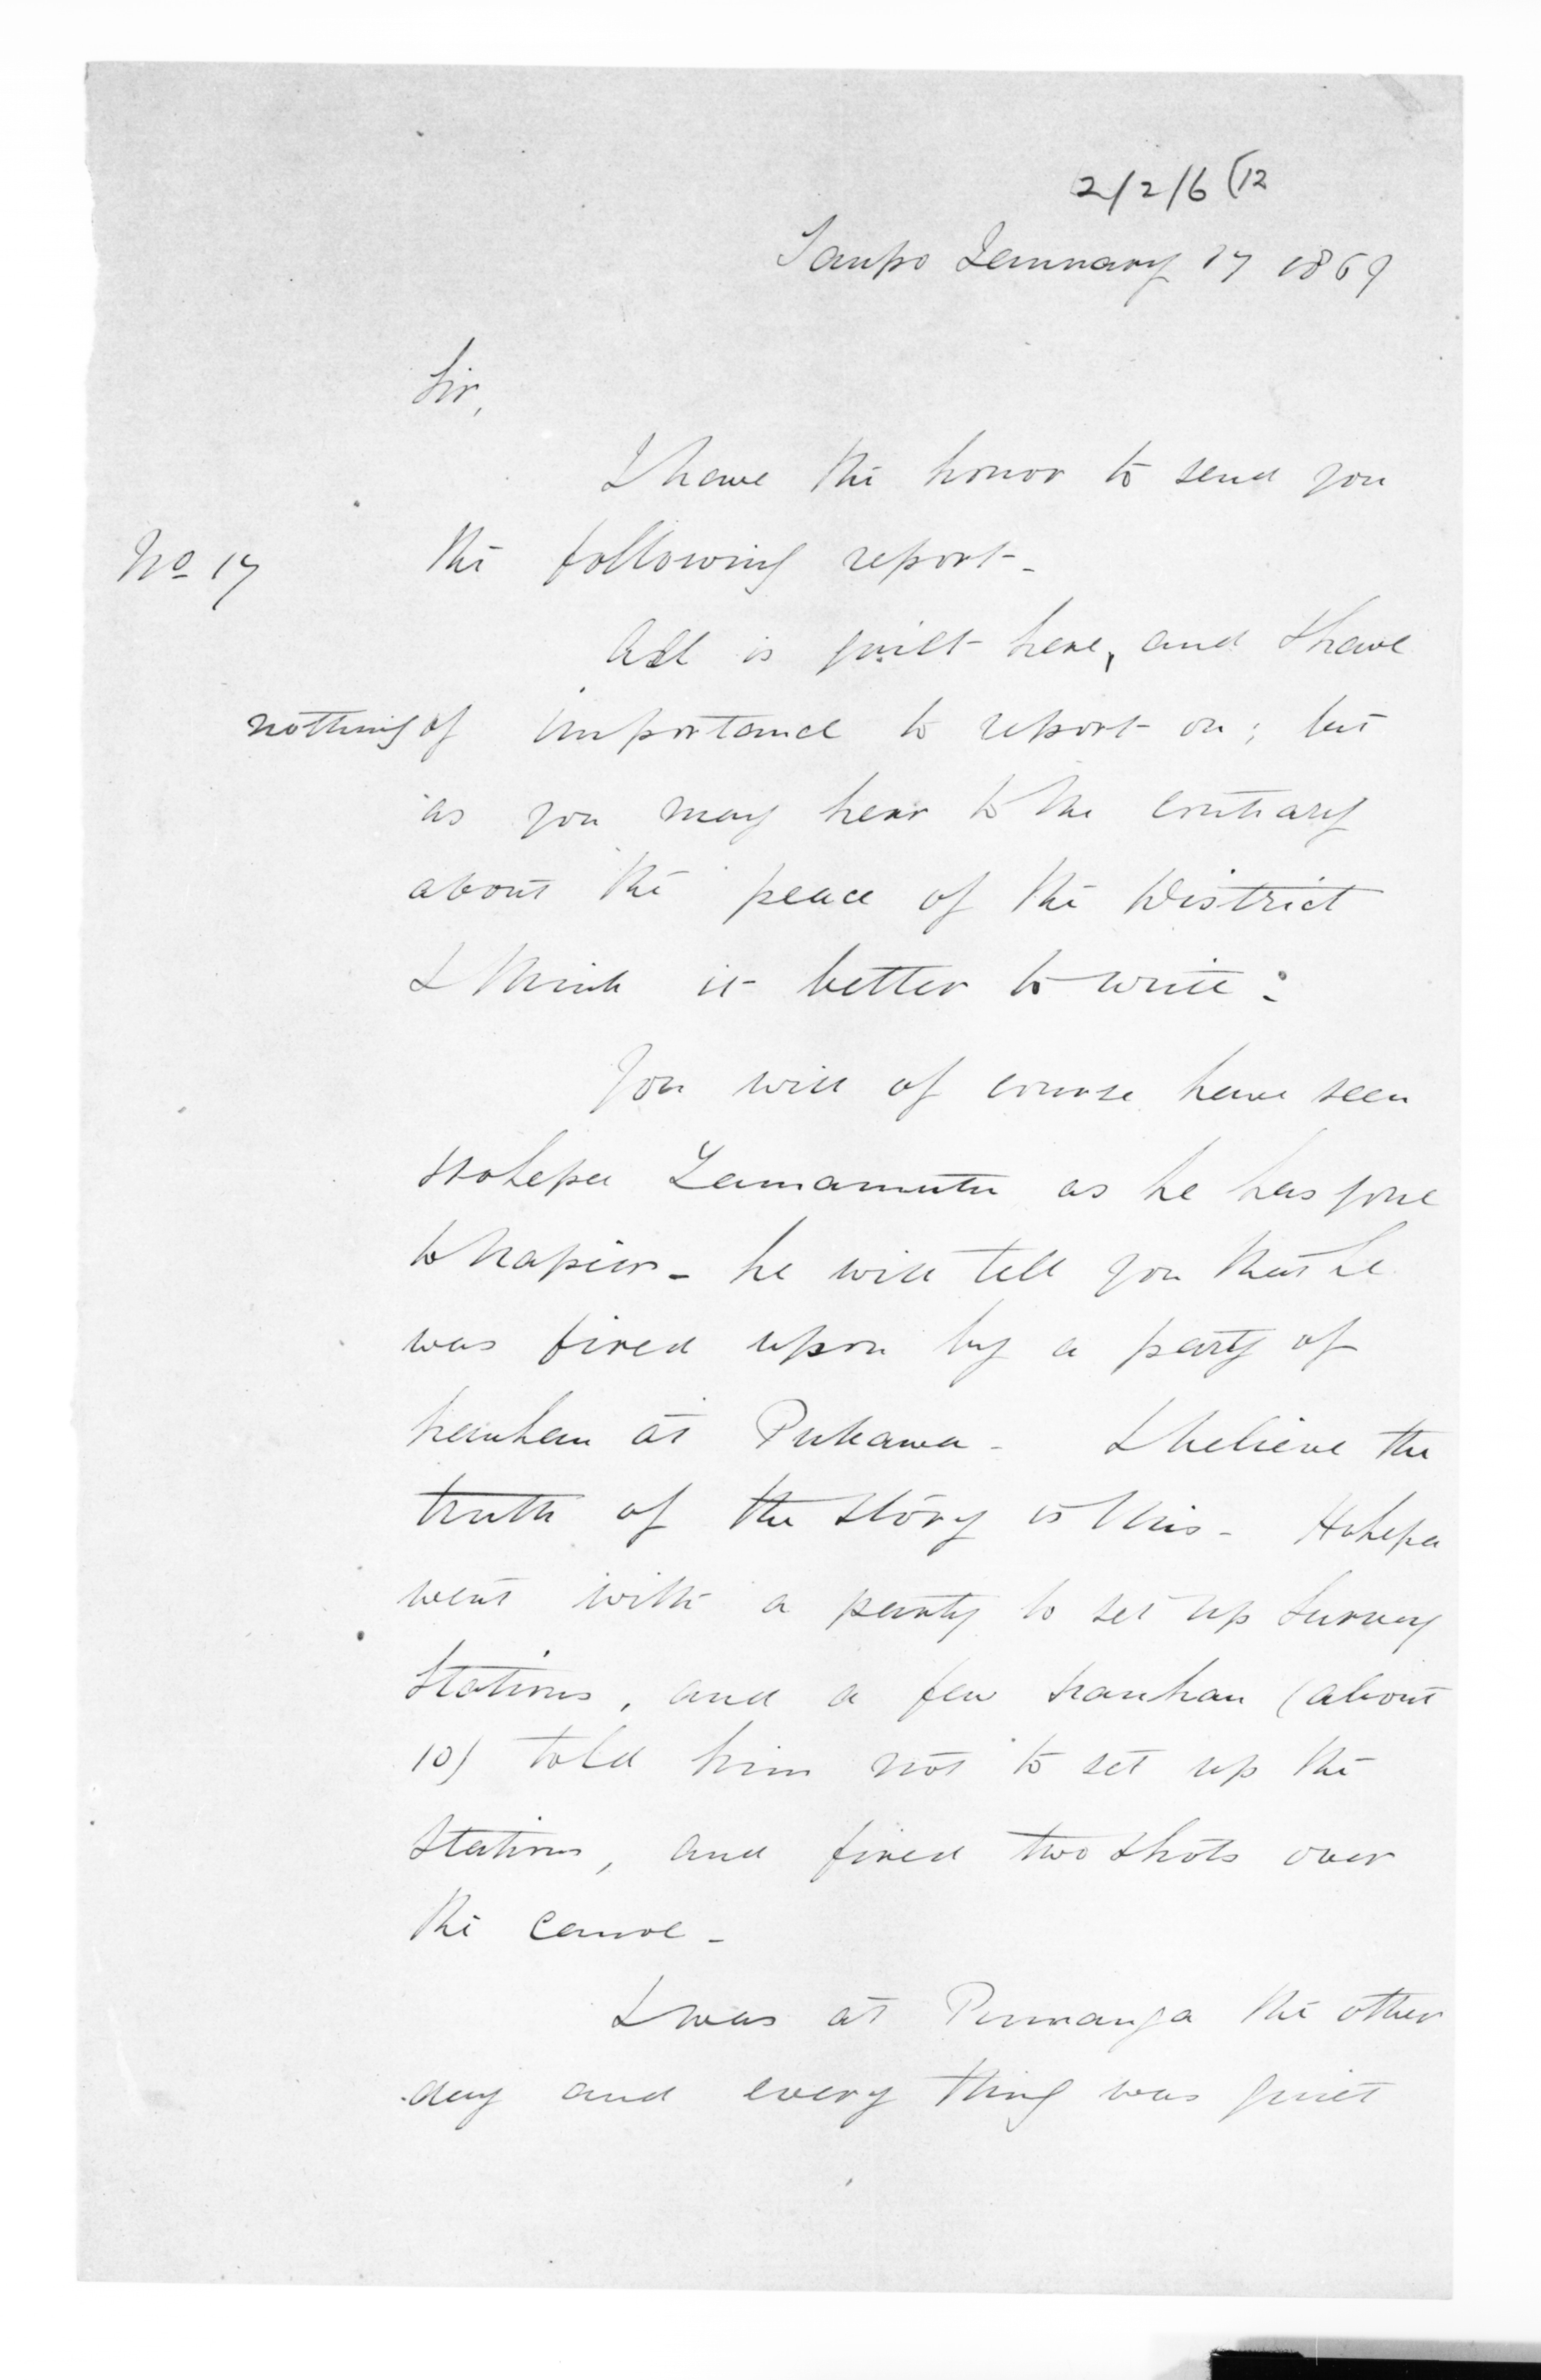 2/2/6 (12
Taupo January 17 1869
Sir,
I have the honor to send you
No 17
the following report -
All is quiet here, and I have
nothing of importance to report on; but
as you may hear to the contrary
about the peace of the District
I think it better to write:
You will of course have seen
Hohepa Tamamutu as he has gone
to Napier - he will tell you that he
was fired upon by a party of
hauhau at Pukawa - I believe the
truth of the story is this - Hohepa
went with a party to set up Survey
Stations, and a few hauhau (about
10) told him not to set up the
Stations, and fired two shots over
the Canoe -
I was at Poumanga the other
day and every thing was quiet